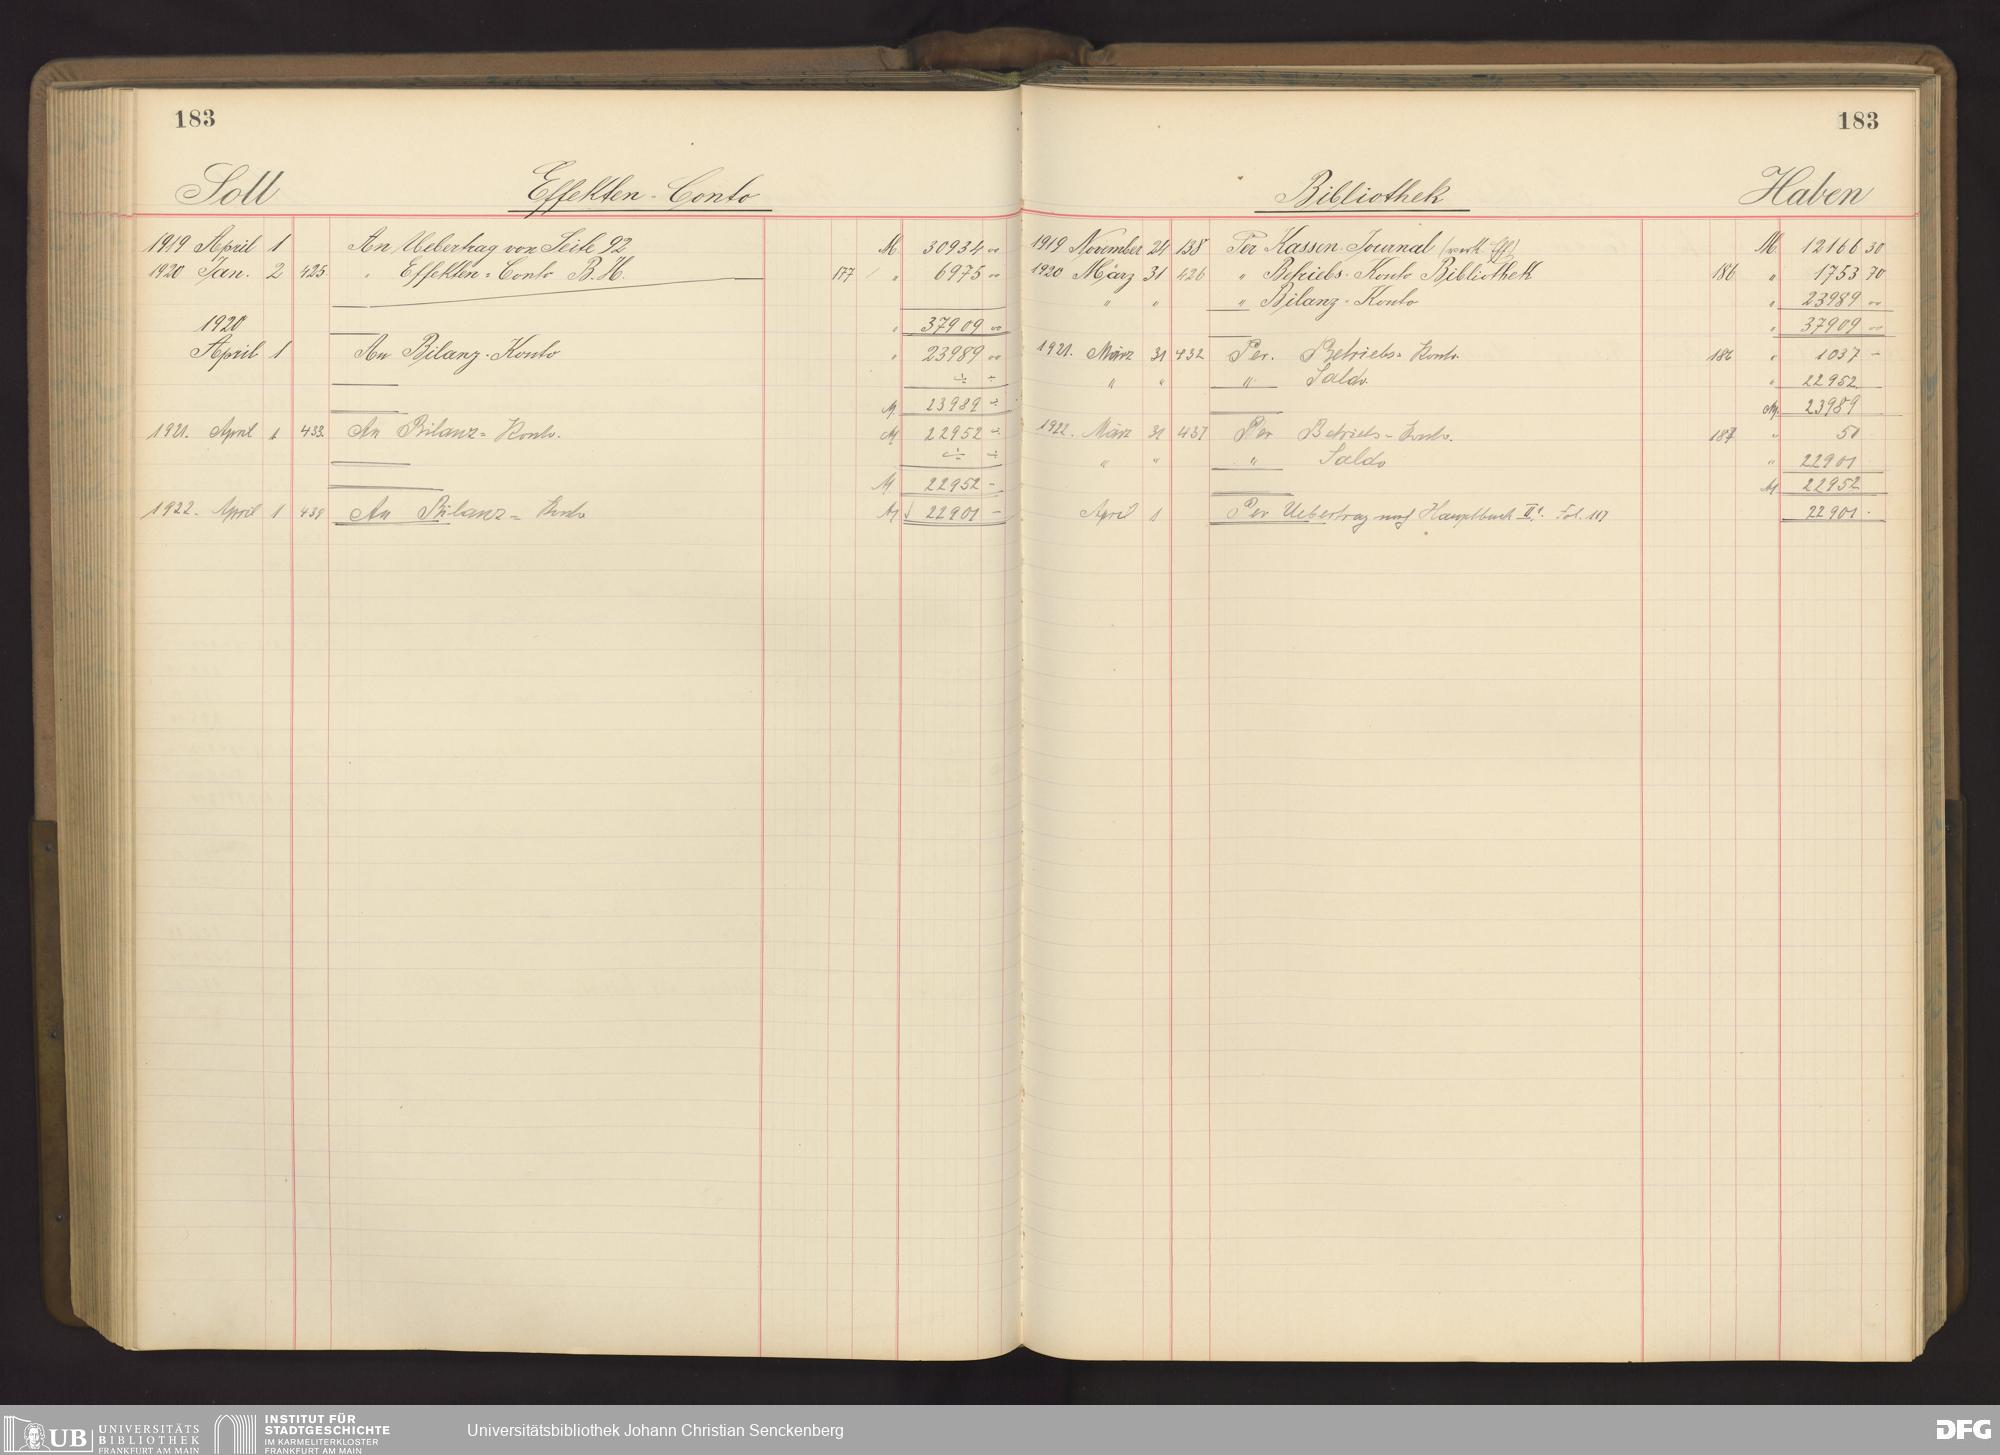 183
Soll Effekten-Conto
1919 April 1 An Uebertrag von Seite 92 M. 30934 00
1920 Jan. 2 425 " Effekten-Conto B.H. 177 " 6975 00
1920 " 37909 00
April 1 An Bilanz-Konto " 23989 00
÷ ÷
M. 23989 ÷
1921. April 1 433 An Bilanz-Konto. M 22952 ÷
÷ ÷
M 22952 –
1922. April 1 438 An Bilanz-Konto M 22901 –
183
Bibliothek Haben
1919 November 24 138 Per Kassen-Journal (verk. Eff) M. 12166 30
1920 März 31 426 " Betriebs-Konto Bibliothek 186 " 1753 70
" " " Bilanz-Konto " 23989 00
" 37909 00
1921. März 31 432 Per. Betriebs-Konto. 186 " 1037 –
" " " Saldo. " 22952
M. 23989
1922. März 31 437 Per Betriebs-Konto. 187 " 51
" " " Saldo " 22901
M 22952
April 1 Per Uebertrag nach Hauptbuch II. Fol. 117 22901 .
UB UNIVERSITÄTS
BIBLIOTHEK
FRANKFURT AM MAIN
INSTITUT FÜR
STADTGESCHICHTE
IM KARMELITERKLOSTER
FRANKFURT AM MAIN
Universitätsbibliothek Johann Christian Senckenberg
DFG